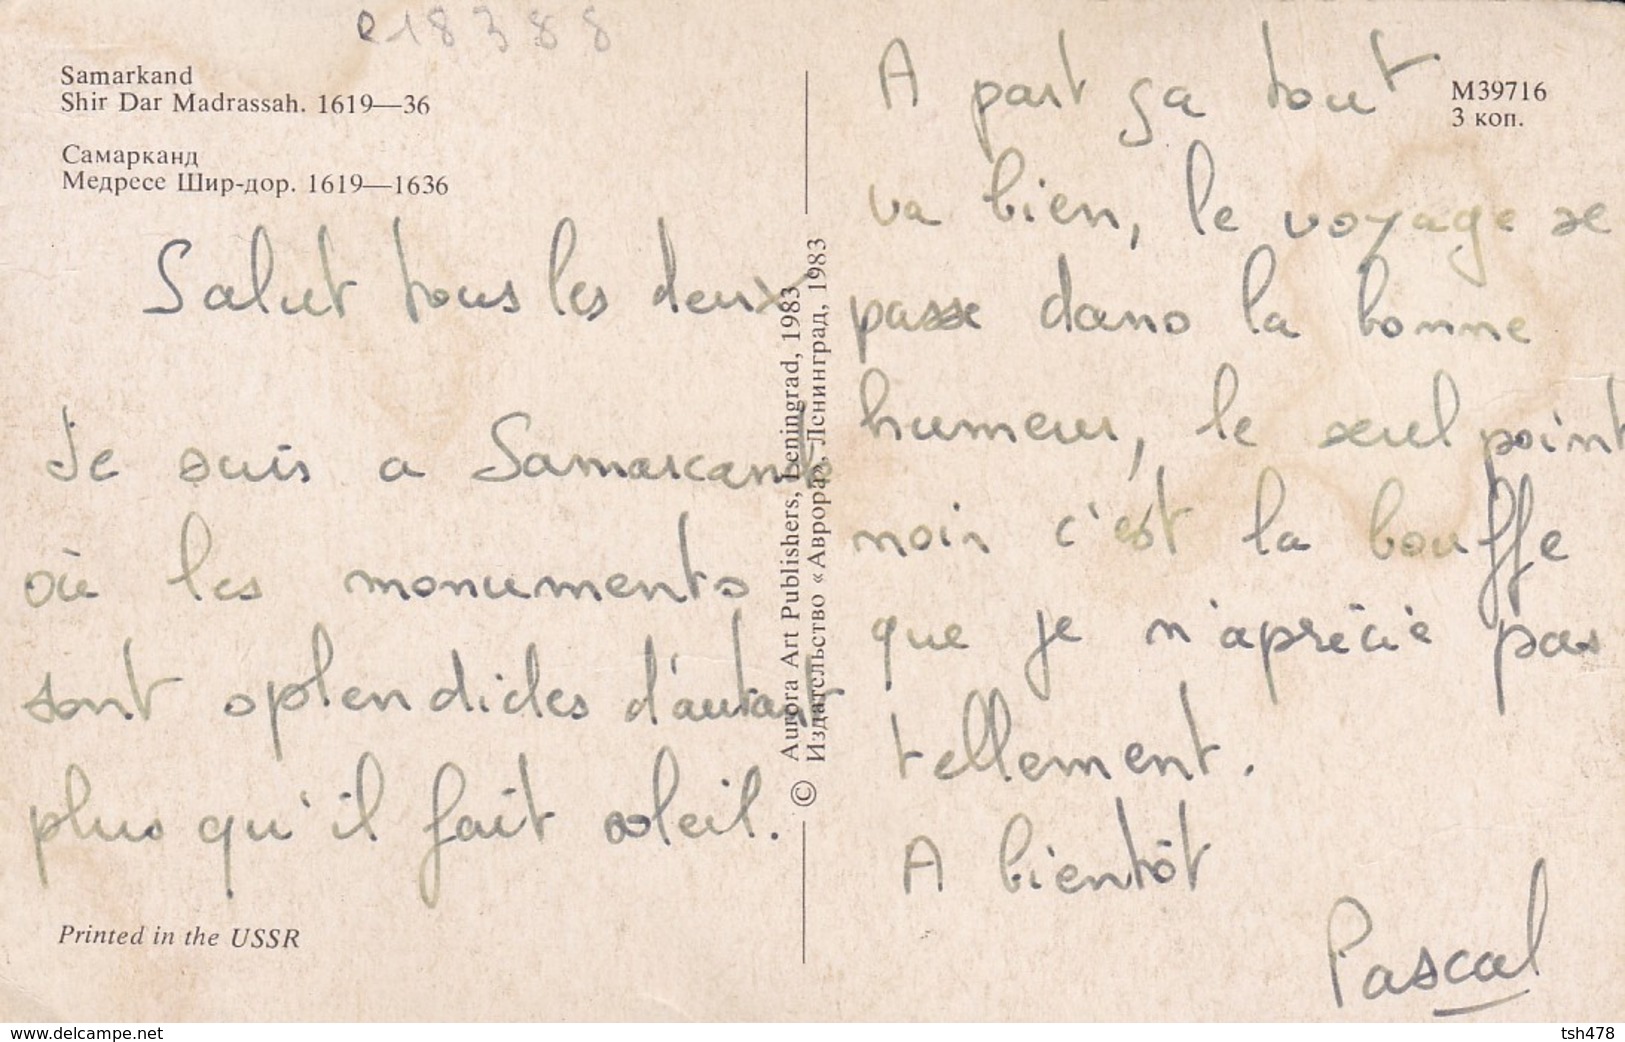 R18388
Samarkand
Shir Dar Madrassah. 1619—36
Самарканд
Медресе Шир-дор. 1619—1636
Salut tous les deux
Je suis a Samarcande
où les monuments
sont splendides d'autant
plus qu'il fait soleil.
Printed in the USSR
© Aurora Art Publishers, Leningrad, 1983
Издательство «Аврора», Ленинград, 1983
M39716
3 коп.
A part ça tout
va bien, le voyage se
passe dans la bonne
humeur, le seul point
noir c'est la bouffe
que je n'aprécié pas
tellement.
A bientôt
Pascal
www.delcampe.net
tsh478